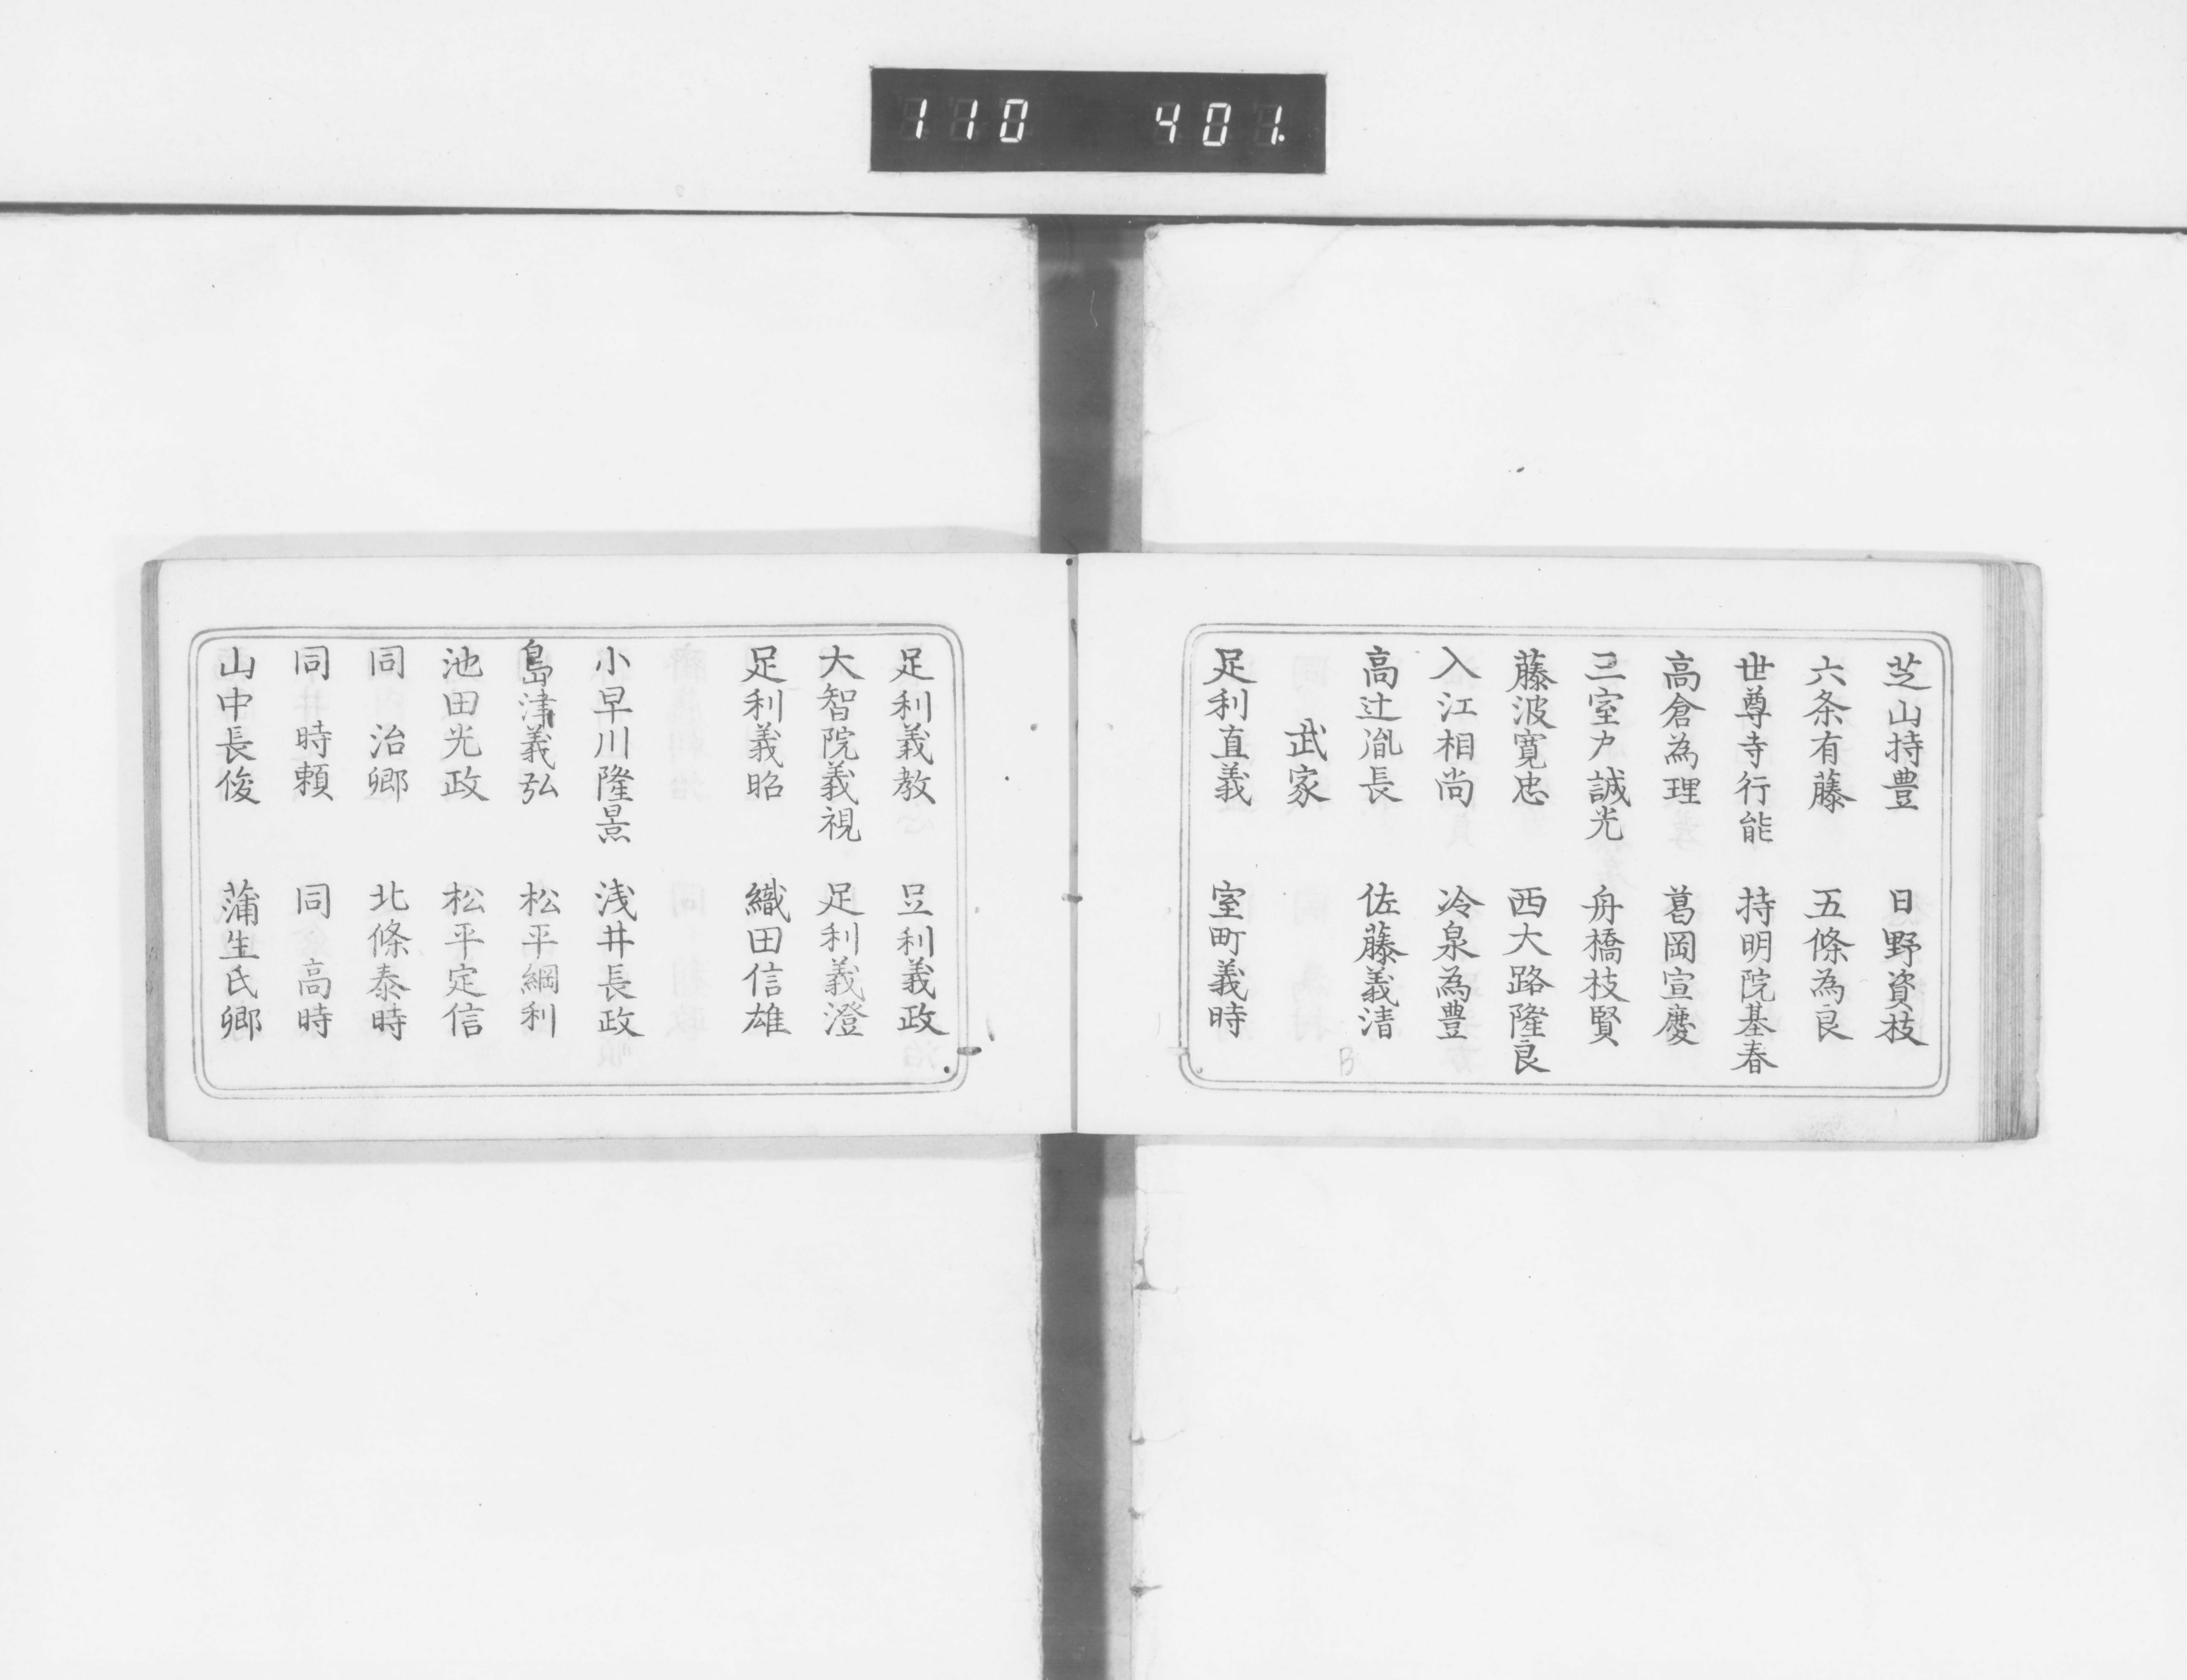 110 401.
芝山持豊 日野資枝
六条有藤 五條為良
世尊寺行能 持明院基春
高倉為理 葛岡宣慶
三室戸誠光 舟橋枝賢
藤波寛忠 西大路隆良
入江相尚 冷泉為豊
高辻胤長 佐藤義清
武家
足利直義 室町義時
足利義教 足利義政
大智院義視 足利義澄
足利義昭 織田信雄
小早川隆景 浅井長政
島津義弘 松平綱利
池田光政 松平定信
同 治郷 北條泰時
同 時頼 同 高時
山中長俊 蒲生氏郷